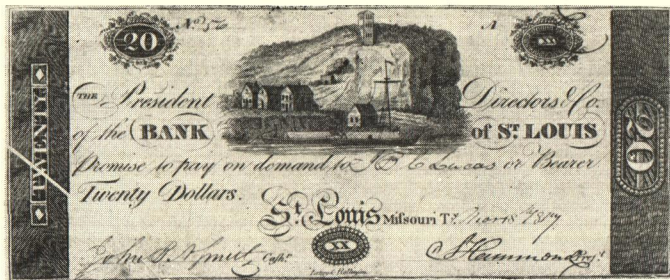 20 No. 56 A XX
THE President Directors & Co.
of the BANK of St. LOUIS
Promise to pay on demand to J B C Lucas or Bearer
Twenty Dollars.
St. Louis Missouri Ty. 1817
John B. N. Smith Cashr. S Hammond Prest.
XX
TWENTY
20